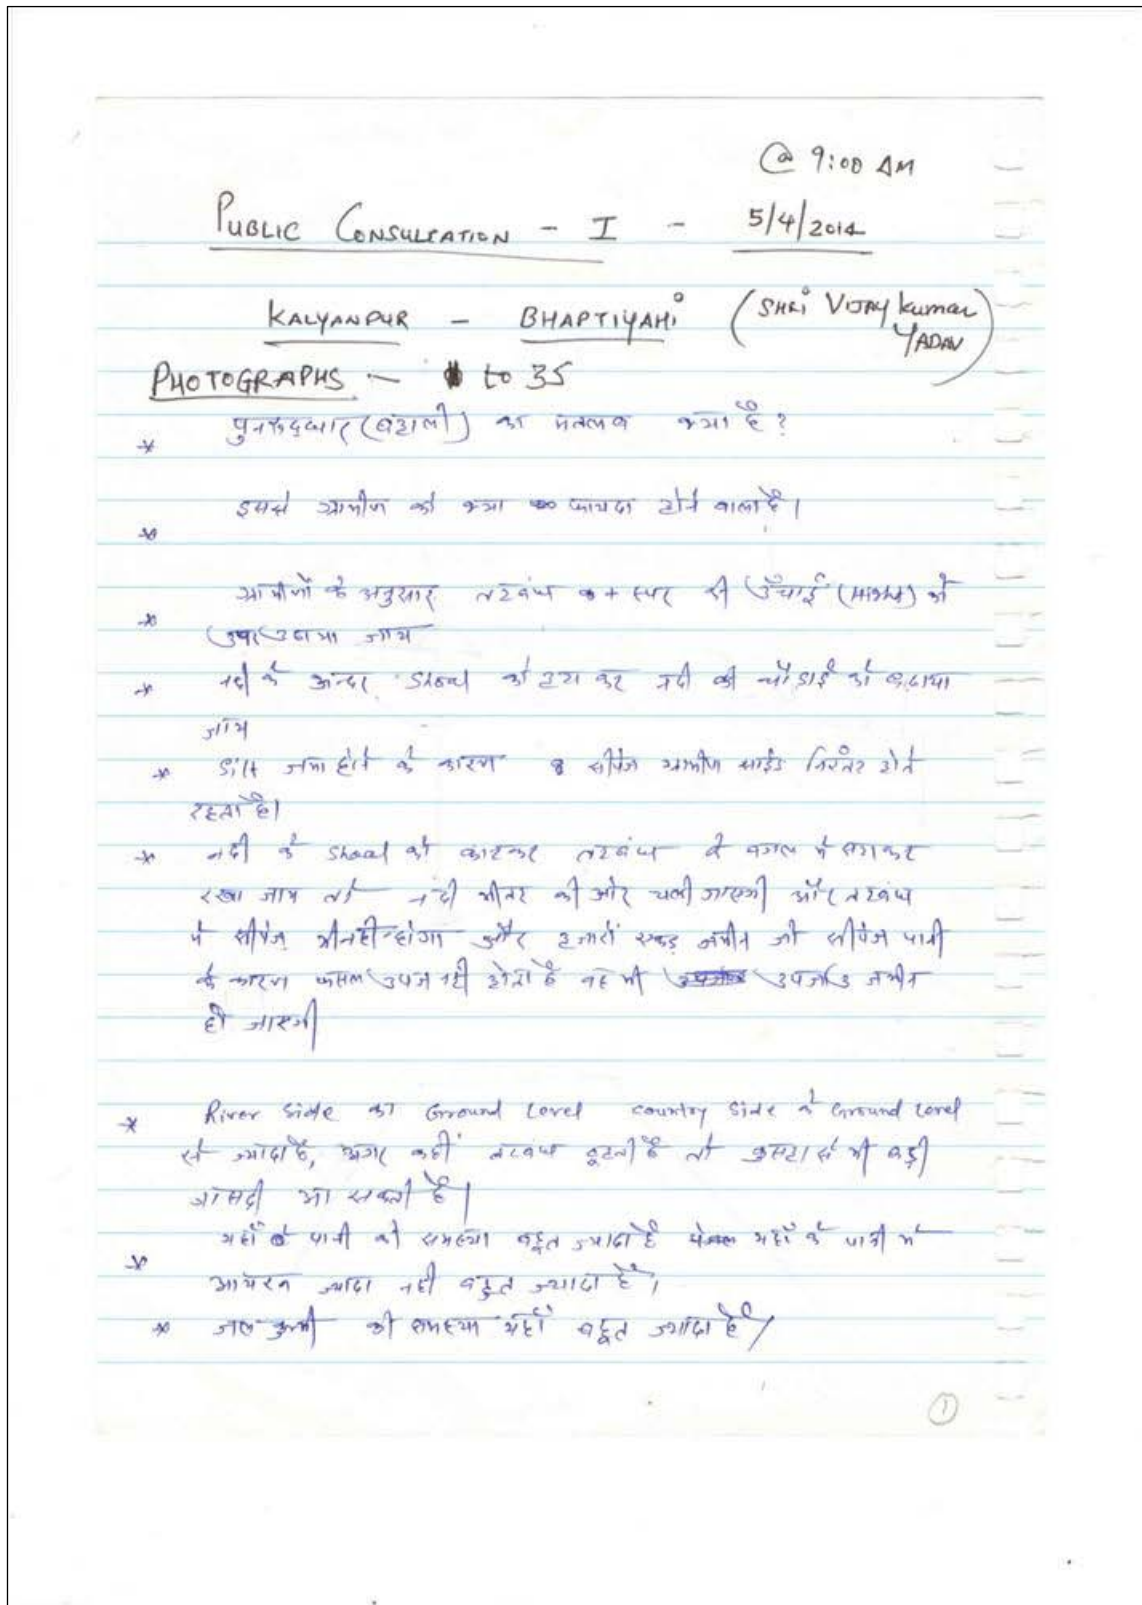 @ 9:00 AM
PUBLIC CONSULTATION - I - 5/4/2014
KALYANPUR - BHAPTIYAHI (SHRI VIJAY Kumar
YADAV)
PHOTOGRAPHS - to 35
* पुनरूद्धार (बहाली) का मतलब क्या है?
* इससे ग्रामीण को क्या फायदा होने वाला है।
* ग्रामीणों के अनुसार तटबंध + स्पर की ऊँचाई को
उपर उठाया जाय
* नदी के अन्दर Shoal को हटा कर नदी की चौडाई को बढाया
जाय
* Silt जमा होने के कारण सीपेज ग्रामीण साईड निरंतर होते
रहता है।
* नदी के Shoal को काटकर तटबंध के बगल में लाकर
रखा जाय तो नदी भीतर की ओर चली जाएगी और तटबंध
में सीपेज भी नही होगा और हजारों एकड़ जमीन जो सीपेज पानी
के कारण फसल उपज नही होता है वह भी उपजाउ जमीन
हो जाएगी
* River Side का Ground Level country Side के Ground Level
से ज्यादा है, अगर कहीं तटबंध टूटती है तो कुसहा से भी बड़ी
त्रासदी आ सकती है।
* यहाँ के पानी की समस्या बहूत ज्यादा है यहाँ के पानी में
आयरन ज्यादा नही बहूत ज्यादा है।
* जल कुम्भी की समस्या यहाँ बहूत ज्यादा है।
1